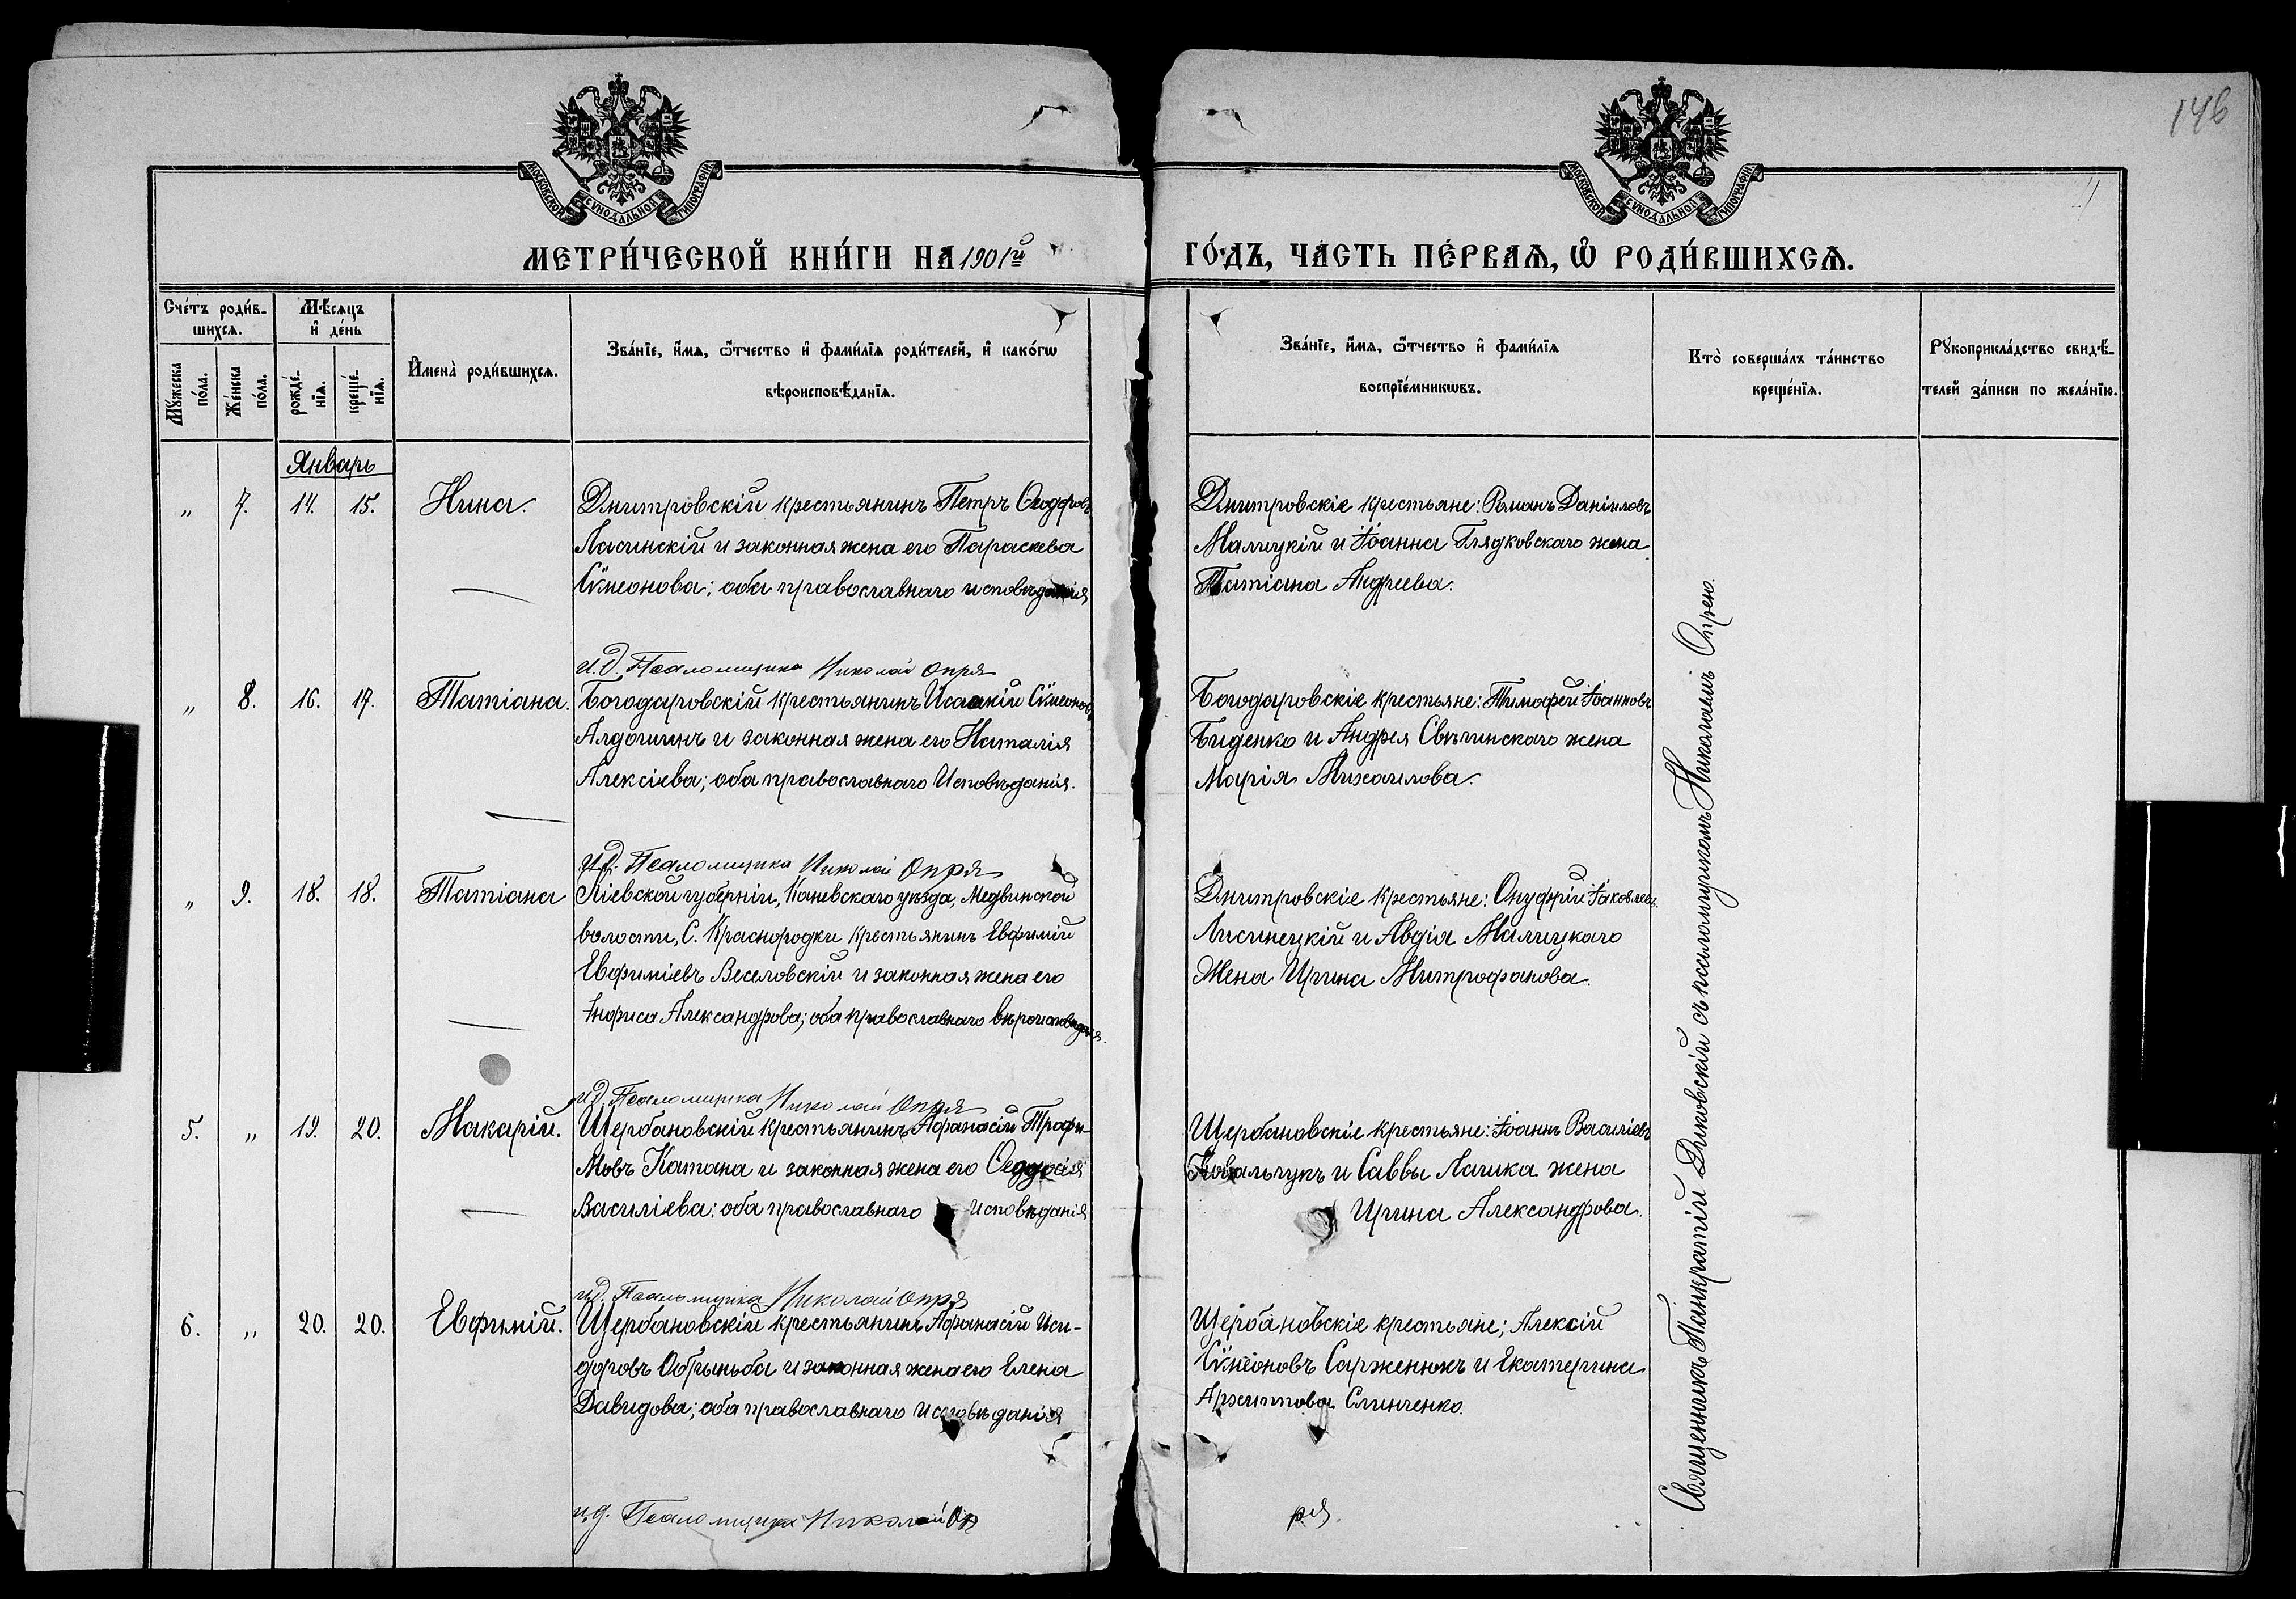 146
МОСКОВСКОЙ СѴНОДАЛЬНОЙ ТИПОГРАФІИ
МОСКОВСКОЙ СѴНОДАЛЬНОЙ ТИПОГРАФІИ
МЕТРИ́ЧЕСКОЙ КНИ́ГИ НА 1901й
ГО́ДЪ, ЧА́СТЬ ПЕ́РВАѦ, Ѽ РОДИ́ВШИХСѦ.
Сче́тъ роди́в-
шихсѧ.
Мѣ́сѧцъ
и҆ де́нь
Мꙋ́жеска
по́ла.
Же́нска
по́ла.
рожде́-
нїѧ.
креще́-
нїѧ.
И҆мена̀ роди́вшихсѧ.
Зва́нїе, и҆́мѧ, ѻ҆́тчество и҆ фами́лїѧ роди́телей, и҆ како́гѡ
вѣроисповѣ́данїѧ.
Зва́нїе, и҆́мѧ, ѻ҆́тчество и҆ фами́лїѧ
воспрїе́мникѡвъ.
Кто̀ соверша́лъ та́инство
креще́нїѧ.
Рꙋкоприкла́дство свидѣ́-
телей за́писи по жела́нїю.
Январь
„ 7. 14. 15. Нина.
Дмитровскій крестьянинъ Петръ Ѳеодоровъ
Ласинскій и законная жена его Параскева
Сѵмеонова; оба православнаго исповѣданія
Дмитровскіе крестьяне: Романъ Даніиловъ
Малицкій и Іоанна Глядковскаго жена
Татіана Андреева.
и.д. Псаломщика Николай Опря
„ 8. 16. 17. Татіана.
Богодаровскій крестьянинъ Исаакій Сѵмеоновъ
Алдошинъ и законная жена его Наталія
Алексіева; оба православнаго Исповѣданія.
Богодаровскіе крестьяне: Тимофей Іоанновъ
Биденко и Андрея Свѣчинскаго жена
Марія Михаилова.
и.д. Псаломщика Николай Опря
„ 9. 18. 18. Татіана
Кіевской губерніи, Каневскаго уѣзда, Медвинской
волости, С. Красногородки крестьянинъ Евфимій
Евфиміевъ Веселовскій и законная жена его
Александрова; оба православнаго вѣроисповѣданія.
Дмитровскіе крестьяне: Онуфрій Іаковлевъ
Лисинецкій и Авдія Малицкаго
Жена Ирина Митрофанова.
и.д. Псаломщика Николай Опря
5. „ 19. 20. Макарій.
Щербановскій крестьянинъ Афанасій Трофи-
мовъ Катана и законная жена его Ѳеодосія
Василіева; оба православнаго исповѣданія
Щербановскіе крестьяне: Іоаннъ Василіевъ
Ковальчукъ и Саввы Лашка жена
Ирина Александрова.
и.д. Псаломщика Николай Опря
6. „ 20. 20. Евфимій.
Щербановскій крестьянинъ Афанасій Иси-
доровъ Обрыньба и законная жена его Елена
Давидова; оба православнаго исповѣданія
Щербановскіе крестьяне; Алексій
Сѵмеоновъ Сарженюкъ и Екатерина
Архиппова Слинченко.
и.д. Псаломщика Николай Оп
ря.
Священникъ Панкратій Диковскій съ псаломщикомъ Николаемъ Опрею.